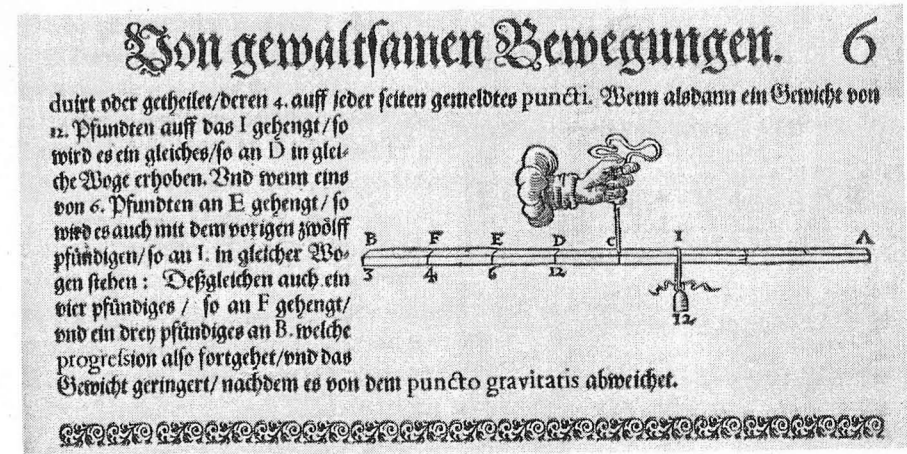 Von gewaltsamen Bewegungen. 6
duirt oder getheilet/deren 4. auff jeder seiten gemeldtes puncti. Wenn alsdann ein Gewicht von
12. Pfundten auff das I gehengt/so
wird es ein gleiches/so an D in glei-
che Woge erhoben. Vnd wenn eins
von 6. Pfundten an E gehengt/so
wird es auch mit dem vorigen zwölff
pfündigen/so an I. in gleicher Wo-
gen stehen: Deßgleichen auch ein
vier pfündiges / so an F gehengt/
vnd ein drey pfündiges an B. welche
progression also fortgehet/vnd das
Gewicht geringert/nachdem es von dem puncto gravitatis abweichet.
B F E D C I A
3 4 6 12
12